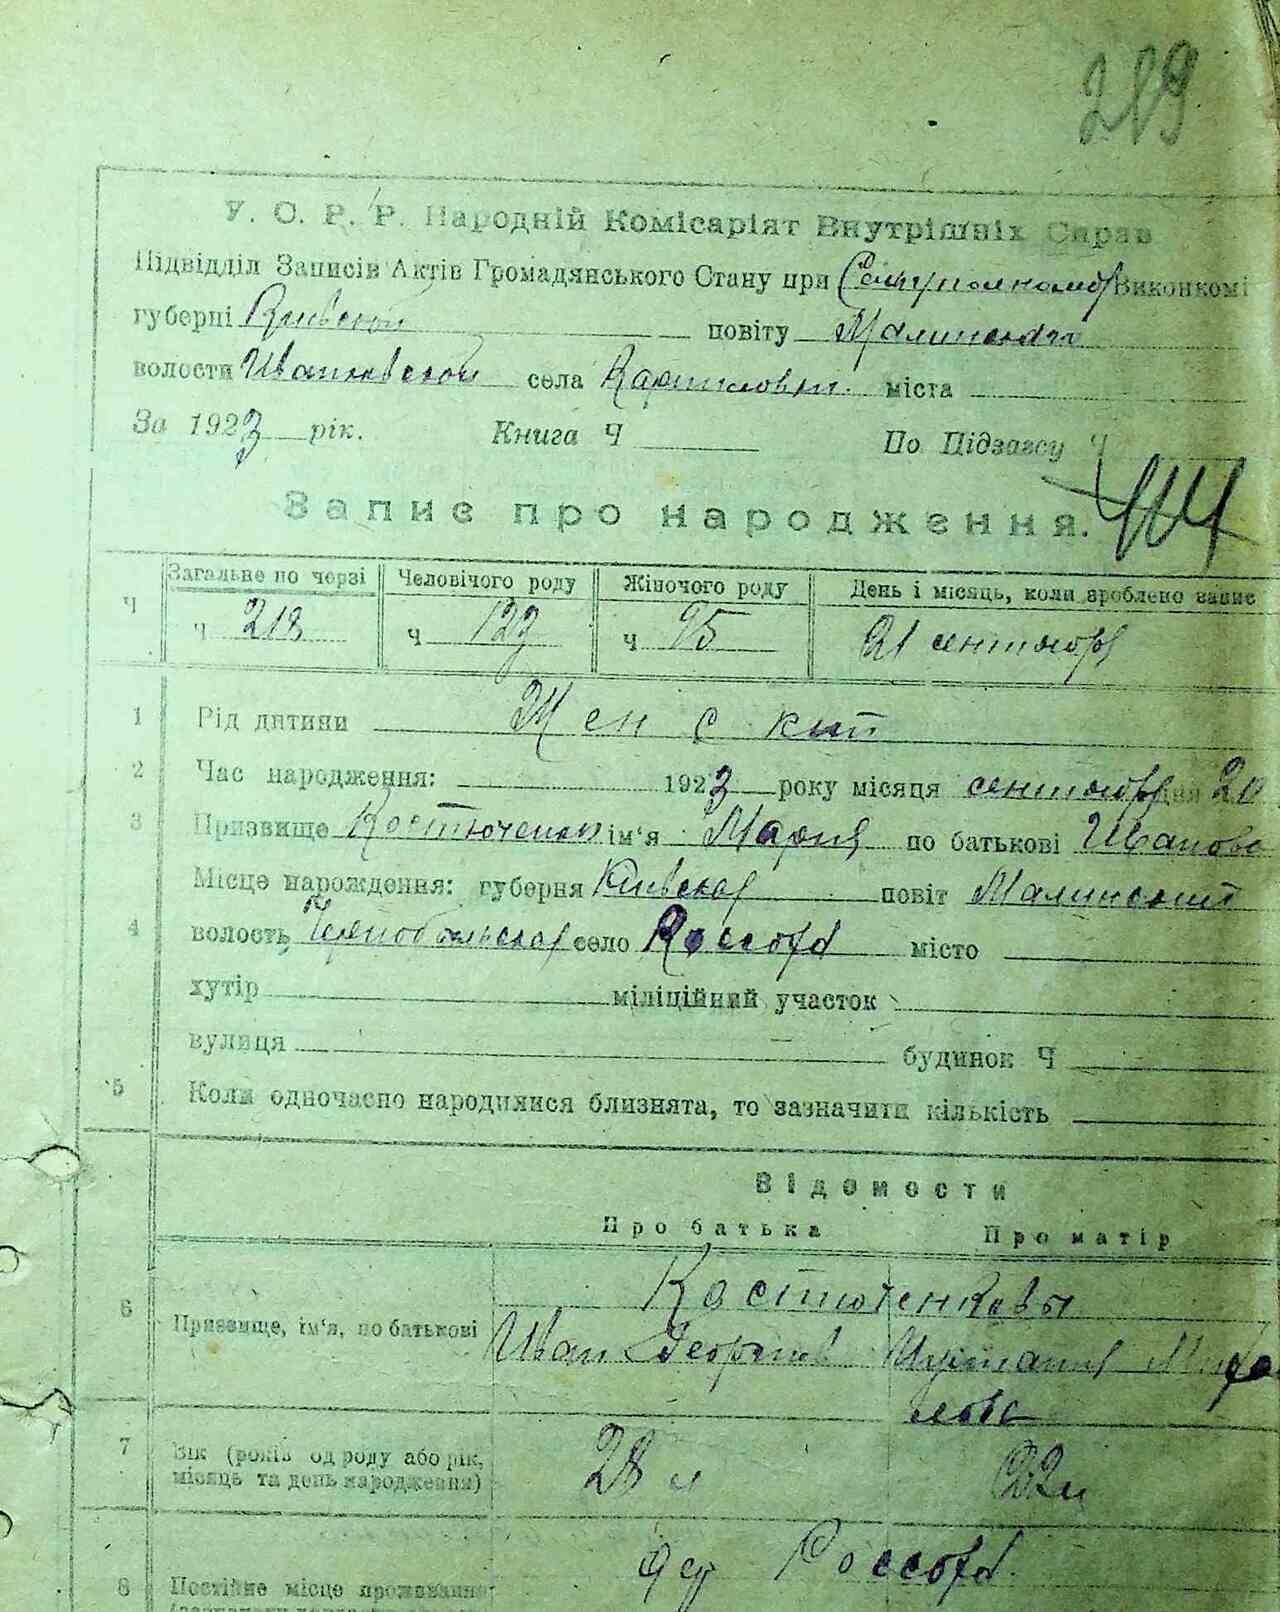 219
У. С. Р. Р. Народній Комісаріят Внутрішніх Справ
Підвідділ Записів Актів Громадянського Стану при Виконкомі
губерні Киевской повіту Малинского
волости Иванковской села міста
За 1923 рік. Книга Ч По Підзагсу Ч
Запис про народження.
Загальне по черзі Человічого роду Жіночого роду День і місяць, коли зроблено запис
Ч ч 218 ч 123 ч 95 21 сентября
1 Рід дитини Женский
2 Час народження: 1923 року місяця сентября дня 20
3 Призвище Костюченко ім'я Мария по батькові Иванова
Місце нарождення: губерня Киевская повіт Малинский
4 волость Чернобыльская село Россоха місто
хутір міліційний участок
вулиця будинок Ч
5 Коли одночасно народилися близнята, то зазначити кількість
Відомости
Про батька Про матір
6 Костюченковы
Призвище, ім'я, по батькові Иван Георгиев
лова
7 Вік (років од роду або рік, 28 л 22 л
місяць та день народження)
8 Постійне місце проживання Россоха